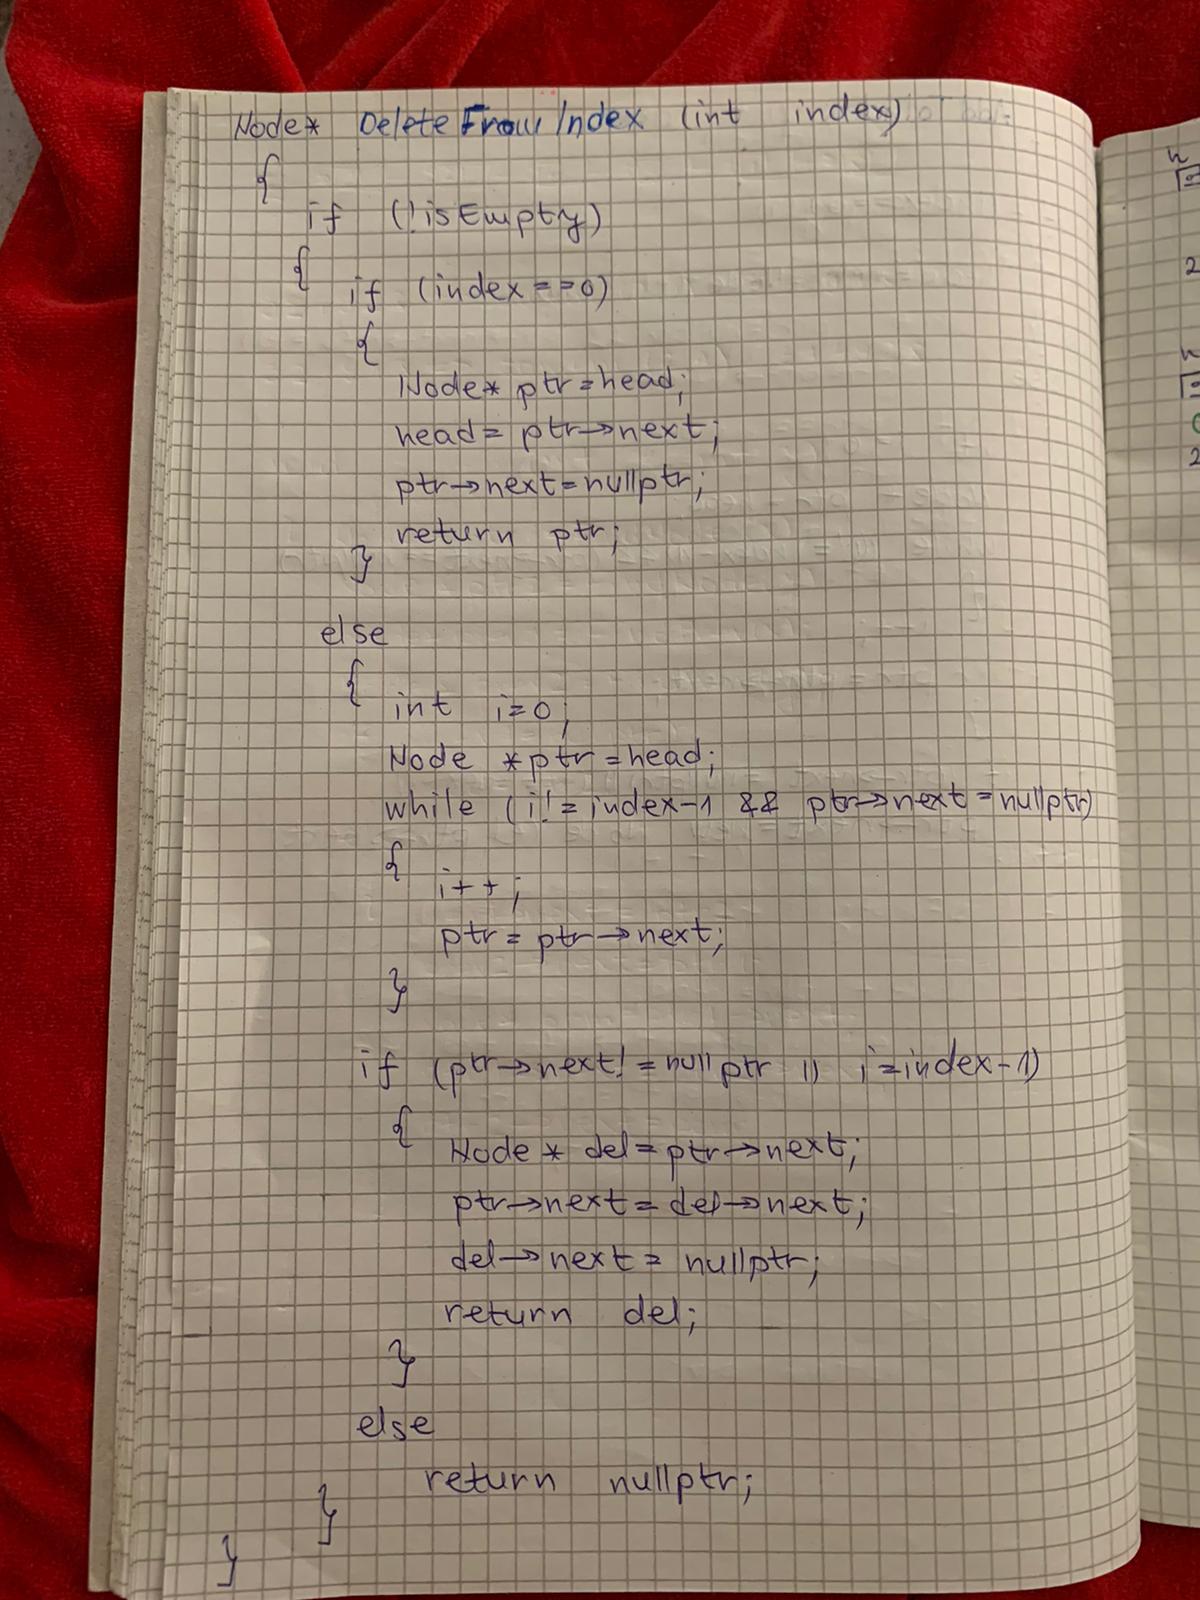 Node* DeleteFromIndex (int index)
{
if (!isEmpty)
{ if (index==0)
{
Node* ptr=head;
head= ptr→next;
ptr→next=nullptr;
return ptr;
}
else
{
int i=0;
Node *ptr=head;
while (i!=index-1 && ptr→next=nullptr)
{
i++;
ptr=ptr→next;
}
if (ptr→next!=nullptr || i=index-1)
{
Node* del=ptr→next;
ptr→next=del→next;
del→next=nullptr;
return del;
}
else
return nullptr;
}
}